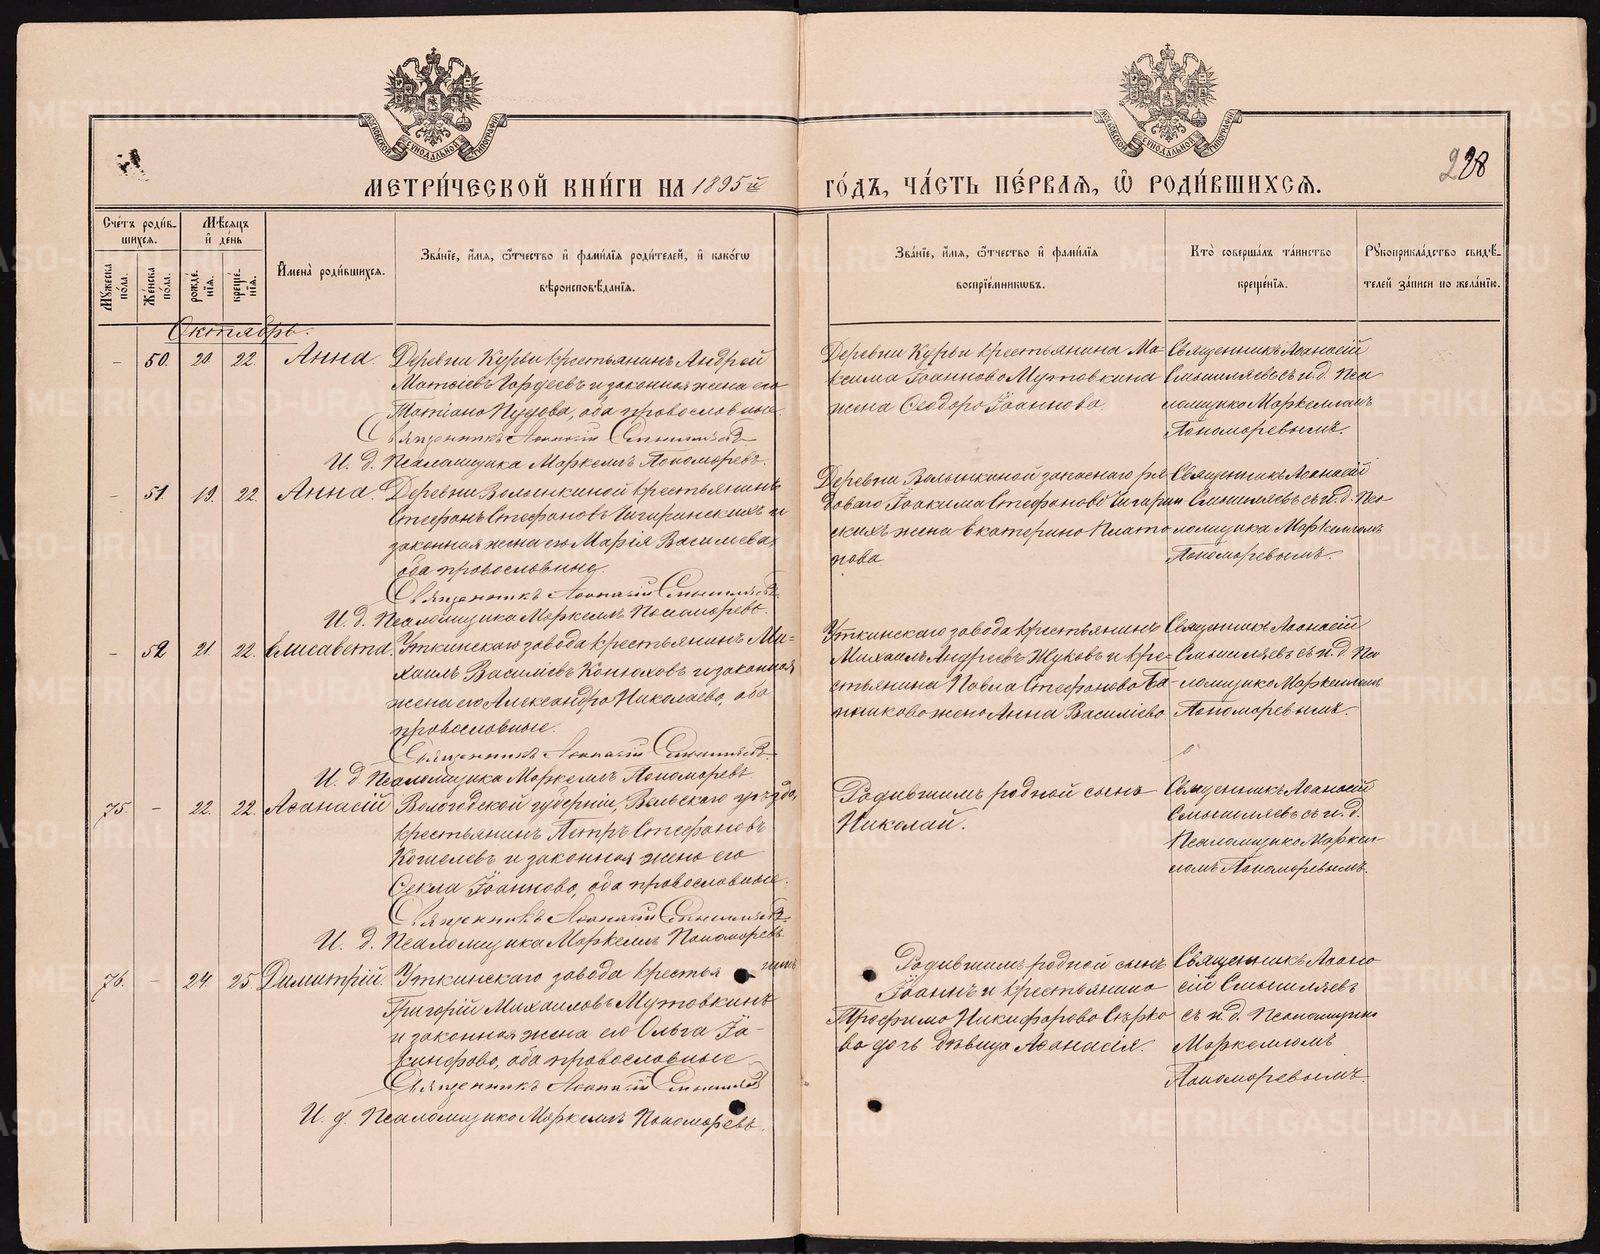 МЕТРИ́ЧЕСКОЙ КНИ́ГИ НА 1895й
ГО́ДЪ, ЧА́СТЬ ПЕ́РВАЯ, Ѽ РОДИ́ВШИХСЯ.
228
Сче́тъ роди́в-
шихся.
Мѣ́сяцъ
и҆ де́нь
Мꙋ́жеска
по́ла.
Же́нска
по́ла.
рожде́-
нїѧ.
креще́-
нїѧ.
И҆мена̀ роди́вшихся.
Зва́нїе, и҆́мя, ѻ҆́тчество и҆ фами́лїя роди́телей, и҆ како́гѡ
вѣроисповѣ́данїя.
Зва́нїе, и҆́мя, ѻ҆́тчество и҆ фами́лїя
воспрїе́мникѡвъ.
Кто̀ соверша́лъ та́инство
креще́нїя.
Рꙋкоприкла́дство свидѣ́-
телей за́писи по жела́нїю.
Октябрь.
– 50. 20 22. Анна.
Деревни Курьи крестьянинъ Андрей
Матѳіевъ Гордеевъ и законная жена его
Татіана Пудова, оба православные.
Священникъ Аѳанасій Смышляевъ
И. д. Псаломщика Маркеллъ Пономаревъ.
Деревни Курьи крестьянина Ма-
ксима Іоаннова Мутовкина
жена Ѳеодора Іоаннова
Священникъ Аѳанасій
Смышляевъ съ и. д. Пса
ломщика Маркелломъ
Пономаревымъ.
– 51. 19. 22. Анна.
Деревни Волынкиной крестьянинъ
Стефанъ Стефановъ Чигиринскихъ и
законная жена его Марія Василіева,
оба православные.
Священникъ Аѳанасій Смышляевъ
И. д. Псаломщика Маркеллъ Пономаревъ.
Деревни Волынкиной запаснаго ря
доваго Іоакима Стефанова Чигирин
скихъ жена Екатерина Плато
нова
Священникъ Аѳанасій
Смышляевъ съ и. д. Пса
ломщика Маркелломъ
Пономаревымъ.
– 52 21. 22. Елисавета.
Уткинскаго завода крестьянинъ Ми-
хаилъ Василіевъ Конюховъ и законная
жена его Александра Николаева, оба
православные.
Священникъ Аѳанасій Смышляевъ
И. д. Псаломщика Маркеллъ Пономаревъ
Уткинскаго завода крестьянинъ
Михаилъ Андреевъ Жуковъ и кре-
стьянина Павла Стефанова Ба-
нникова жена Анна Василіева
Священникъ Аѳанасій
Смышляевъ съ и. д. Пса
ломщика Маркелломъ
Пономаревымъ.
75. – 22. 22. Аѳанасій
Вологодской губерніи, Вельскаго уѣзда,
крестьянинъ Петръ Стефановъ
Кошелевъ и законная жена его
Ѳекла Іоаннова, оба православные.
Священникъ Аѳанасій Смышляевъ
И. д. Псаломщика Маркеллъ Пономаревъ
Родившимъ родной сынъ
Николай.
Священникъ Аѳанасій
Смышляевъ съ и. д.
Псаломщика Маркел-
ломъ Пономаревымъ.
76. – 24. 25 Димитрій.
Уткинскаго завода крестья нинъ
Григорій Михаиловъ Мутовкинъ
и законная жена его Ольга Іа-
кинфова, оба православные
Священникъ Аѳанасій Смышляевъ
И. д. Псаломщика Маркеллъ Пономаревъ.
Родившимъ родной сынъ
Іоаннъ и крестьянина
Трофима Никифорова Сѣрко
ва дочь дѣвица Аѳанасія.
Священникъ Аѳана
сій Смышляевъ
съ и. д. Псаломщика
Маркелломъ
Пономаревымъ.